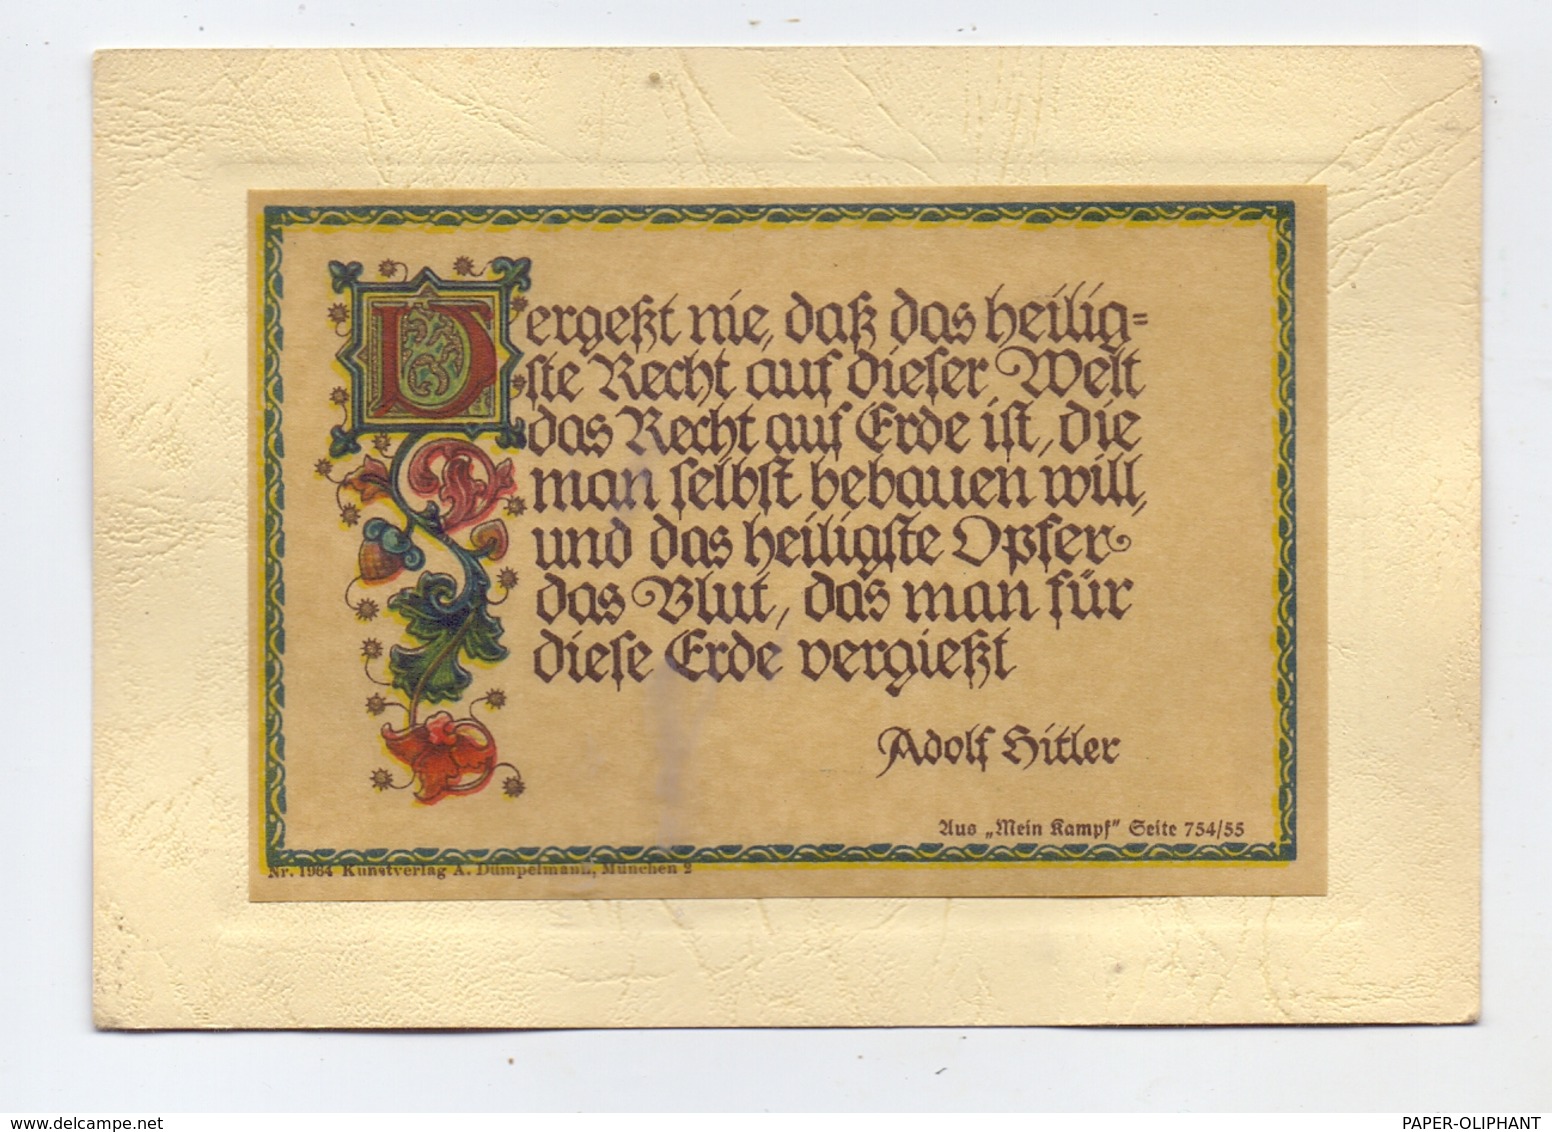 Vergeßt nie, daß das heilig=
ste Recht auf dieser Welt
das Recht auf Erde ist, die
man selbst bebauen will,
und das heiligste Opfer
das Blut, das man für
diese Erde vergießt
Adolf Hitler
Aus „Mein Kampf" Seite 754/55
Nr. 1964 Kunstverlag A. Dümpelmann, München 2
www.delcampe.net
PAPER-OLIPHANT